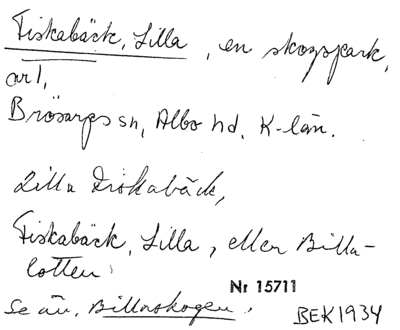 Fiskabäck, Lilla, en skogspark,
arl,
Brösarps sn, Albo hd, K-län.
Lilla Fiskabäck,
Fiskabäck, Lilla, eller Billa-
lotten
Nr 15711
Se äv. Billaskogen.
BEK1934